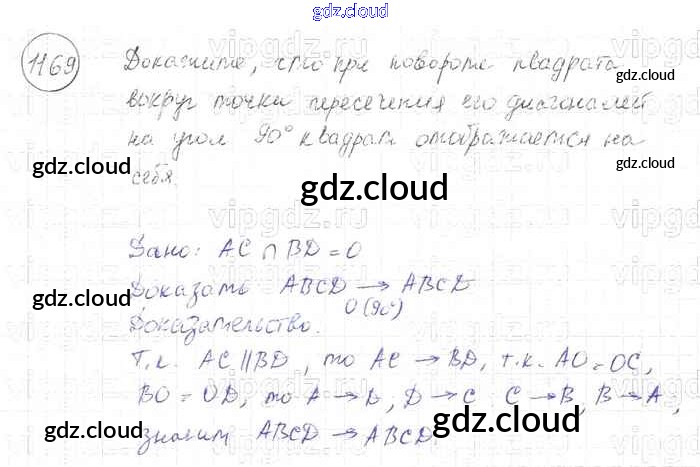 gdz.cloud
1169
Докажите, что при повороте квадрата
вокруг точки пересечения его диагоналей
на угол 90° квадрат отображается на
себя.
Дано: AC ∩ BD = O
Доказать ABCD → ABCD
O (90°)
Доказательство.
Т.к. AC ∥ BD, то AC → BD, т.к. AO = OC,
BO = OD, то A → D, D → C, C → B, B → A,
значит ABCD → ABCD.
gdz.cloud
gdz.cloud
gdz.cloud
gdz.cloud
gdz.cloud
gdz.cloud
gdz.cloud
gdz.cloud
gdz.cloud